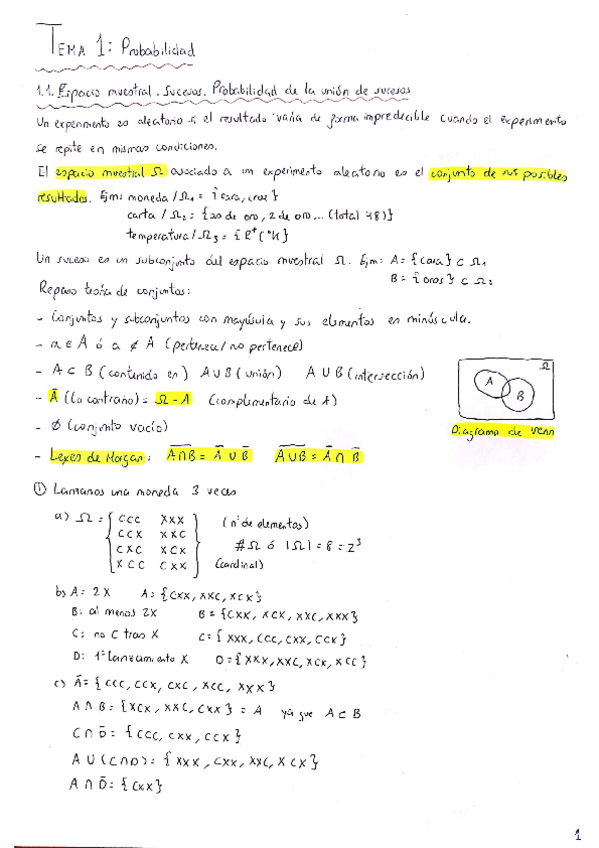 TEMA 1: Probabilidad
1.1. Espacio muestral. Sucesos. Probabilidad de la unión de sucesos
Un experimento es aleatorio si el resultado varia de forma impredecible cuando el experimento
se repite en mismas condiciones.
El espacio muestral Ω asociado a un experimento aleatorio es el conjunto de sus posibles
resultados. Ejm: moneda / Ω₁ = {cara, cruz}
carta / Ω₂ = {as de oro, 2 de oro... (total 48)}
temperatura / Ω₃ = {R⁺ (°K)}
Un suceso es un subconjunto del espacio muestral Ω. Ejm: A = {cara} ⊂ Ω₁
B = {oros} ⊂ Ω₂
Repaso teoría de conjuntos:
- Conjuntos y subconjuntos con mayúscula y sus elementos en minúscula.
- a ∈ A ó a ∉ A (pertenece / no pertenece)
- A ⊂ B (contenido en) A ∪ B (unión) A ∪ B (intersección)
- Ā (lo contrario) = Ω - A (complementario de A)
- ∅ (conjunto vacío)
Ω
A
B
Diagrama de venn
- Lexes de Morgan: A̅∩̅B̅ = Ā ∪ B̄ A̅∪̅B̅ = Ā ∩ B̄
① Lanzamos una moneda 3 veces
a) Ω = { CCC XXX } (nº de elementos)
CCX XXC
CXC XCX #Ω ó |Ω| = 8 = 2³
XCC CXX (cardinal)
b) A: 2X A = {CXX, XXC, XCX}
B: al menos 2X B = {CXX, XCX, XXC, XXX}
C: no C tras X C = {XXX, CCC, CXX, CCX}
D: 1º lanzamiento X D = {XXX, XXC, XCX, XCC}
c) Ā = {CCC, CCX, CXC, XCC, XXX}
A ∩ B = {XCX, XXC, CXX} = A ya que A ⊂ B
C ∩ D̄ = {CCC, CXX, CCX}
A ∪ (C ∩ D) = {XXX, CXX, XXC, XCX}
A ∩ D̄ = {CXX}
1